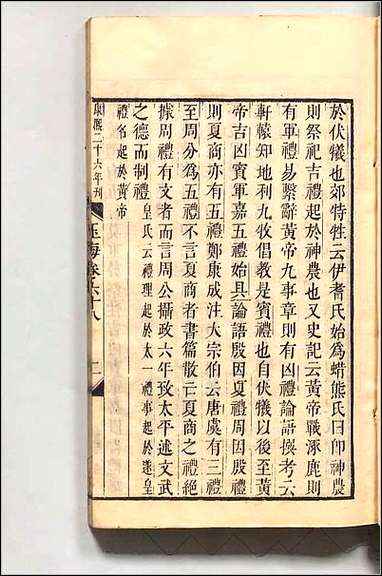 於伏犧也郊特牲云伊耆氏始爲蜡熊氏曰卽神農
則祭祀吉禮起於神農也又史記云黃帝戰涿鹿則
有軍禮易繫辭黃帝九事章則有凶禮論語撰考云
軒轅知地利九牧倡教是賓禮也自伏犧以後至黃
帝吉凶賓軍嘉五禮始具論語殷因夏禮周因殷禮
則夏商亦有五禮鄭康成注大宗伯云唐虞有三禮
至周分爲五禮不言夏商者書篇散亡夏商之禮絕
據周禮有文者而言周公攝政六年致太平述文武
之德而制禮皇氏云禮理起於太一禮事起於遂皇
禮名起於黃帝
康熙二十六年刊
玉海卷六十八